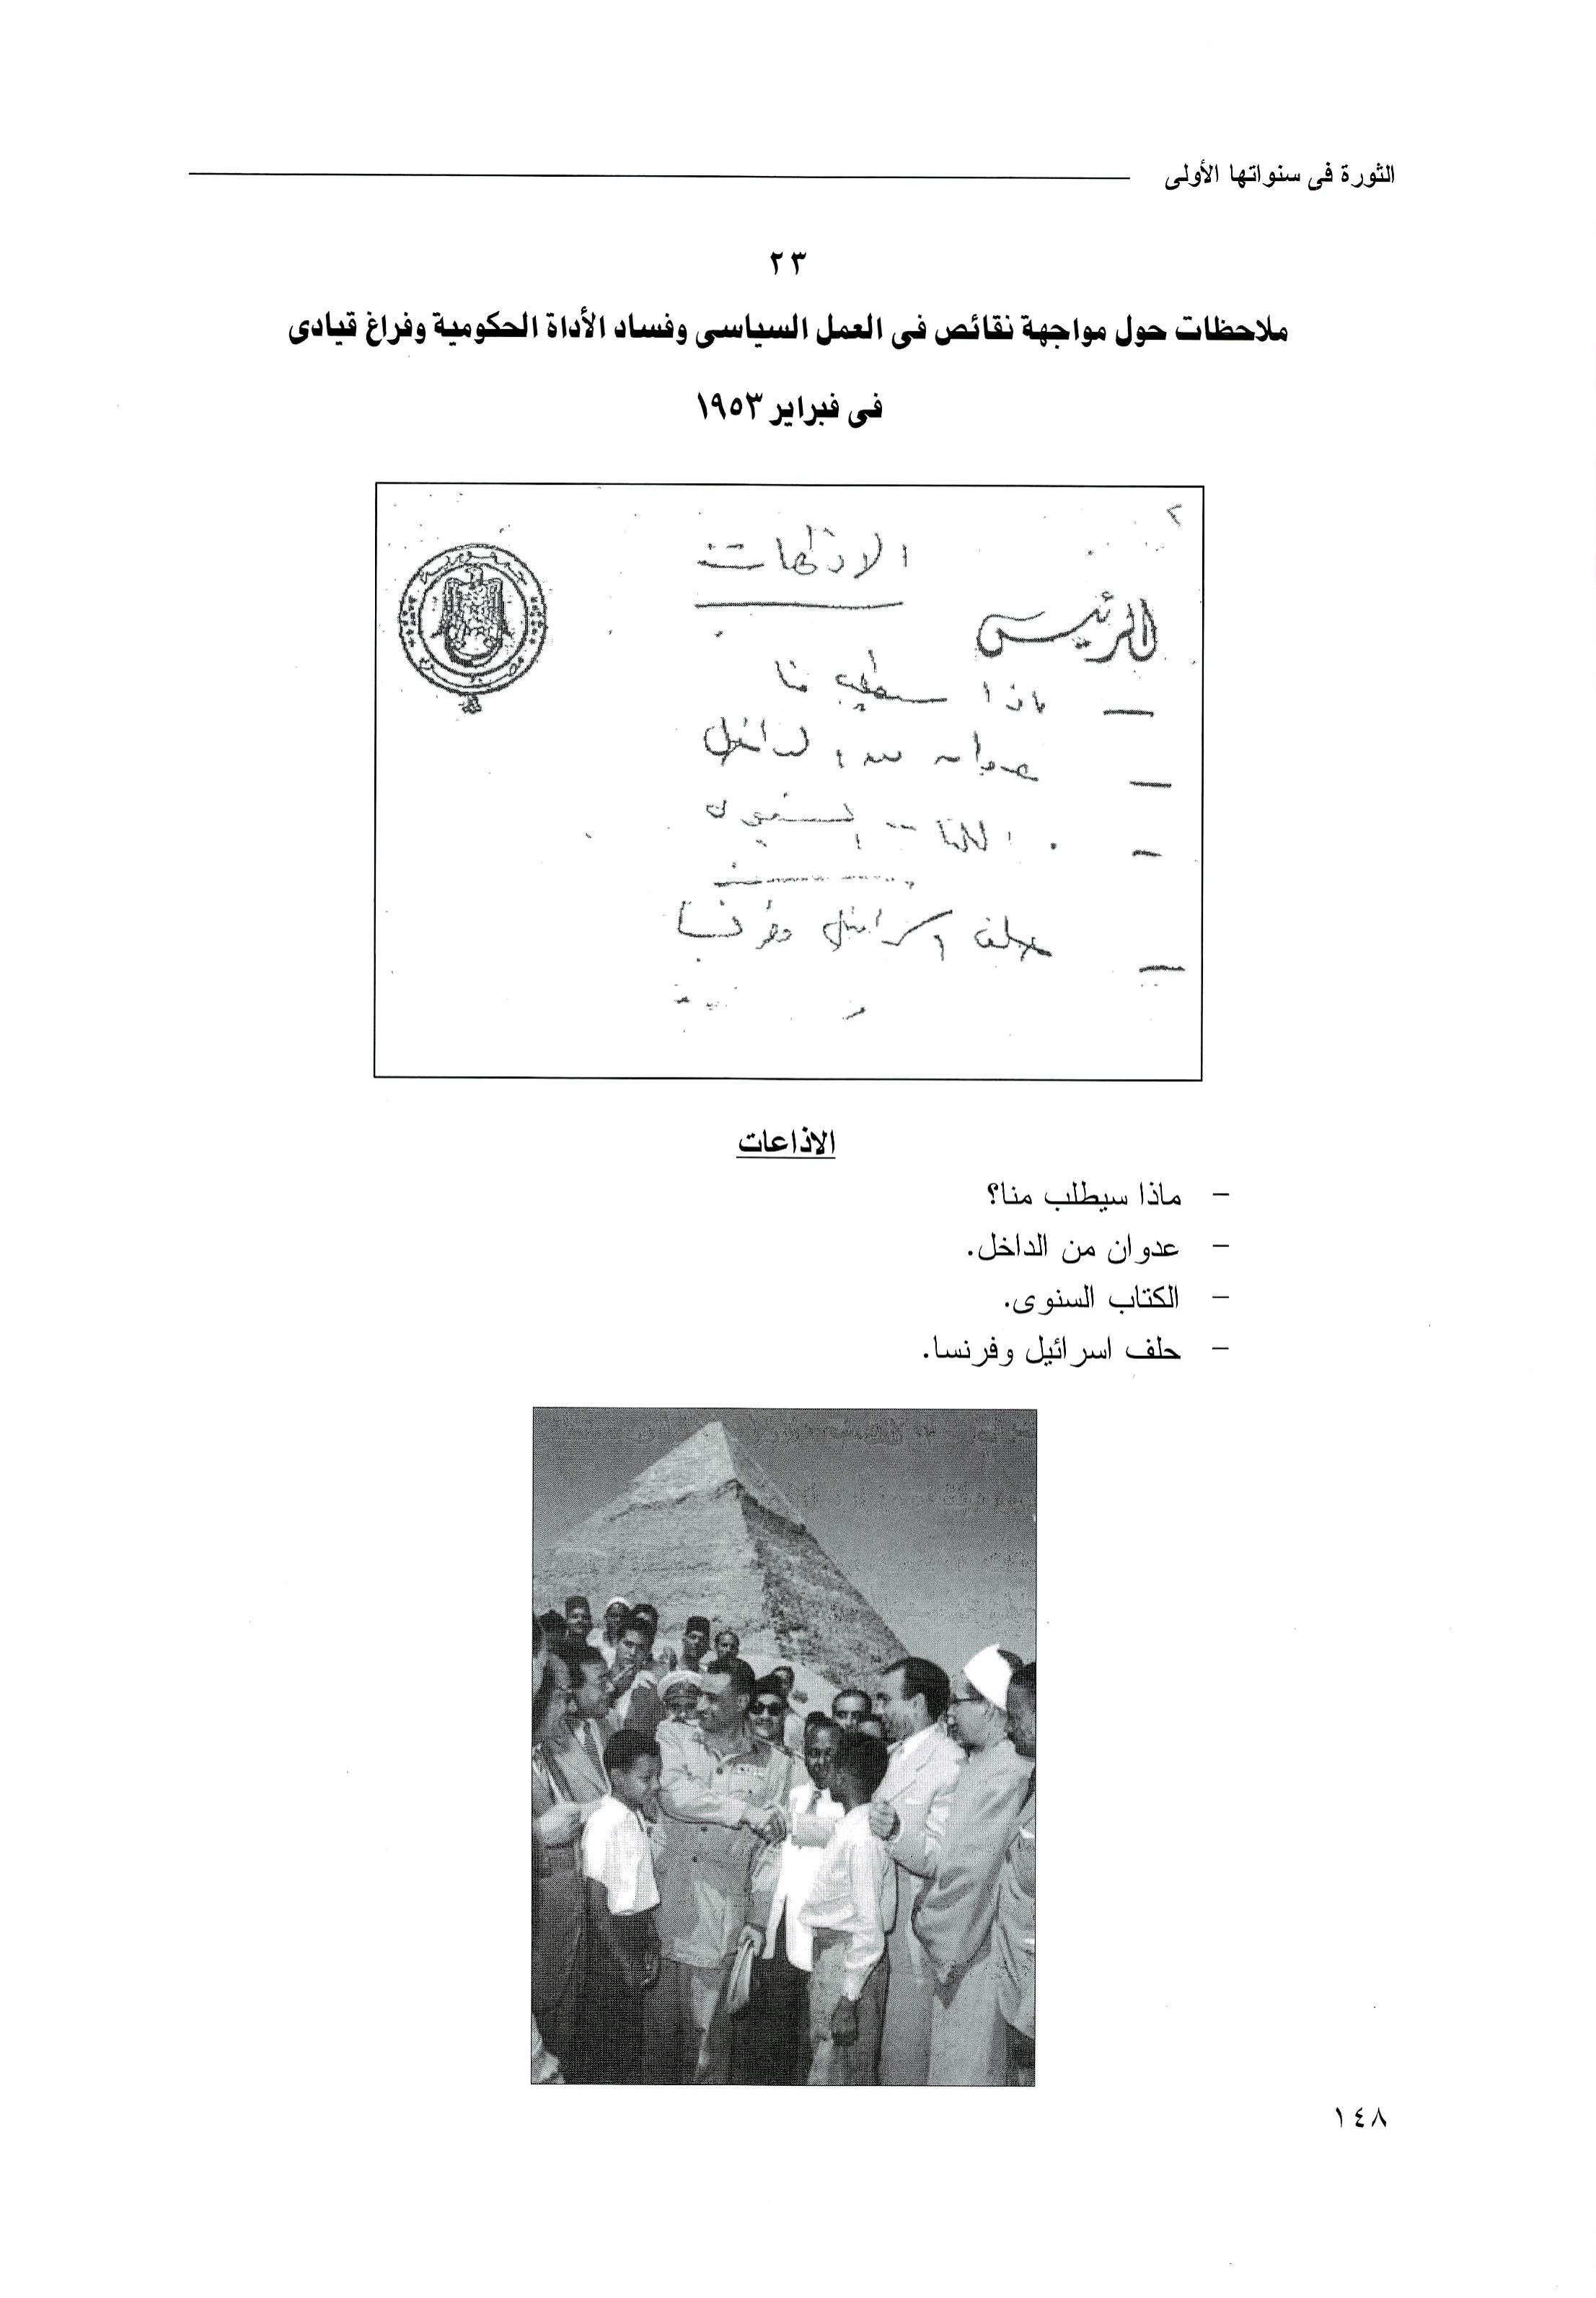 الثورة فى سنواتها الأولى
٢٣
ملاحظات حول مواجهة نقائص فى العمل السياسى وفساد الأداة الحكومية وفراغ قيادى
فى فبراير ١٩٥٣
٢
الاذاعات
الرئيس
— ماذا سيطلب منا
— عدوان من الداخل
— الكتاب السنوى
— حلف اسرائيل وفرنسا
الاذاعات
– ماذا سيطلب منا؟
– عدوان من الداخل.
– الكتاب السنوى.
– حلف اسرائيل وفرنسا.
١٤٨